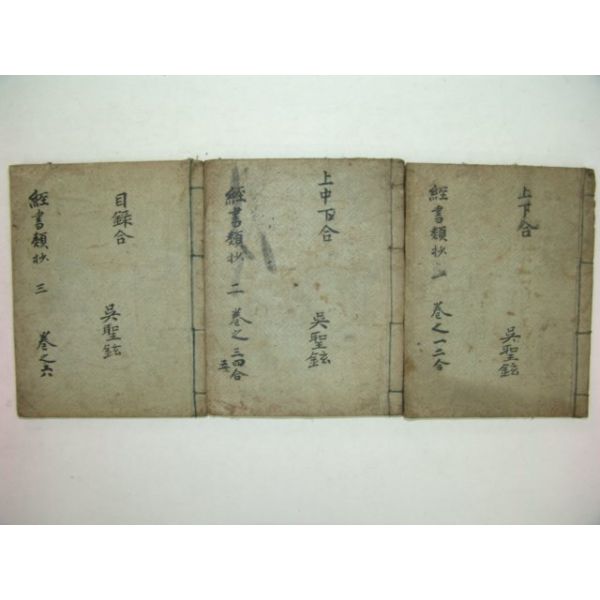 上下合
吳聖鉉
經書類抄 一 卷之一二合
上中下合
吳聖鉉
經書類抄 二 卷之三四五合
目錄合
吳聖鉉
經書類抄 三 卷之六